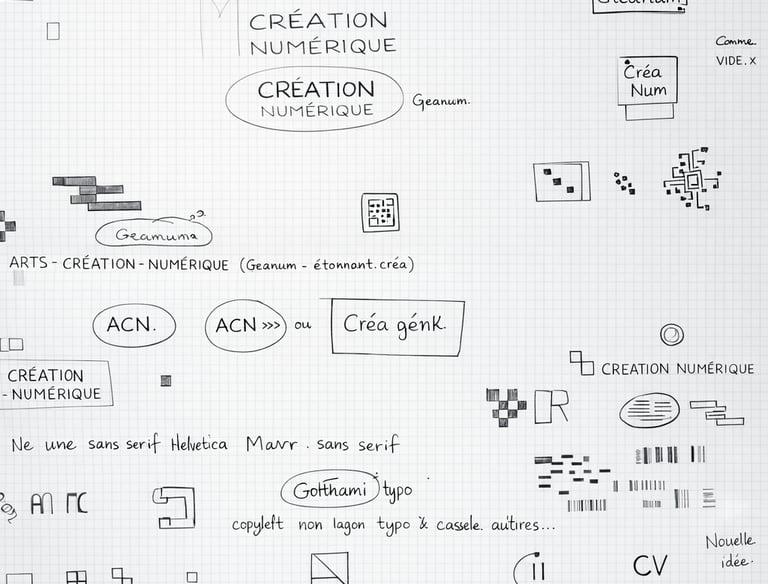 CRÉATION
NUMÉRIQUE
CRÉATION
NUMÉRIQUE
Geanum.
Comme
VIDE.X
Créa
Num
Geamuma
ARTS - CRÉATION - NUMÉRIQUE (Geanum - étonnant.créa)
ACN.
ACN >>> ou
Créa génk.
CRÉATION
- NUMÉRIQUE
CREATION NUMÉRIQUE
R
Ne une sans serif Helvetica Mavr . sans serif
Gotthami typo
copyleft non lagon typo & cassele. autires...
Nouelle
idée.
CV